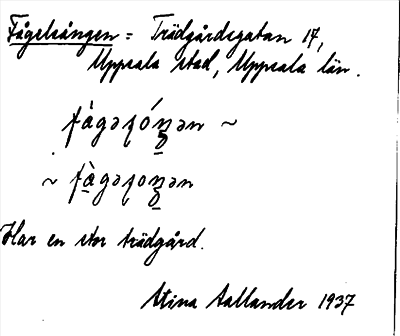 Fågelsången = Trädgårdsgatan 17,
Uppsala stad, Uppsala län.
fågəsóŋən ~
~ fàgəsoŋən
Har en stor trädgård.
Stina Aallander 1937